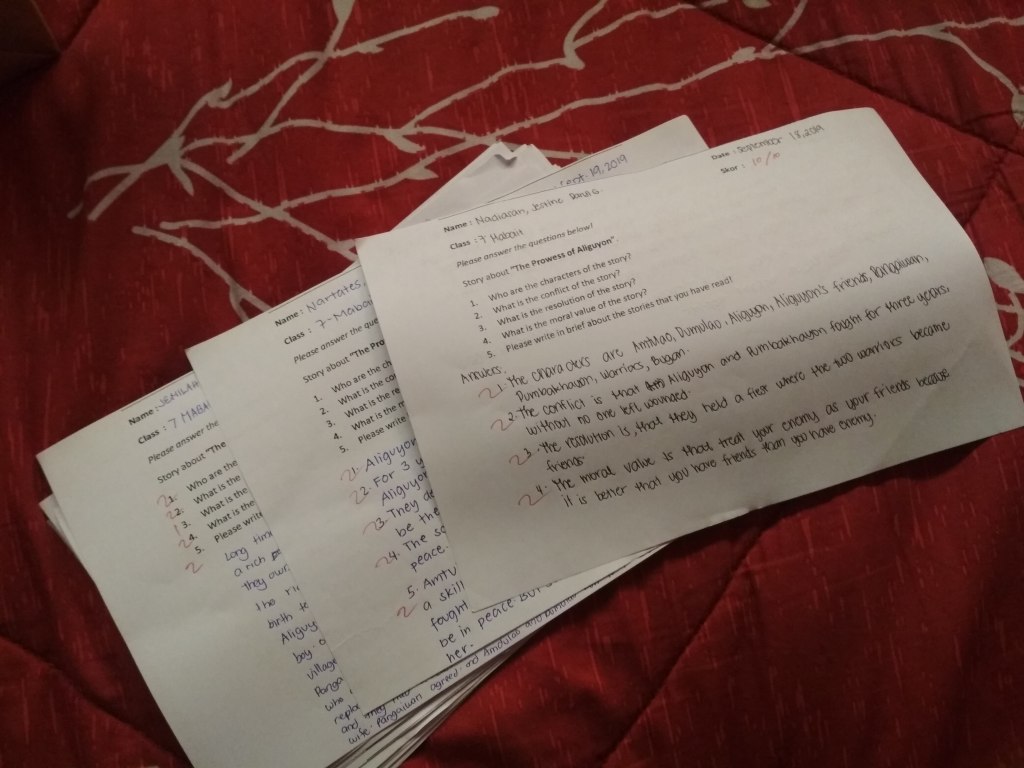 Name : Nadiaran, Jestine Darul G.
Date : September 18, 2019
Class : 7 Mabait
Skor : 10/10
Please answer the questions below!
Story about "The Prowess of Aliguyon".
1. Who are the characters of the story?
2. What is the conflict of the story?
3. What is the resolution of the story?
4. What is the moral value of the story?
5. Please write in brief about the stories that you have read!
Answers:
2 1. The characters are Amtulao, Dumulao, Aliguyon, Aliguyon's friends, Pangaiwan,
Pumbakhayon, Warriors, Bugan.
2 2. The conflict is that Aliguyon and Pumbakhayon fought for three years,
without no one left wounded.
2 3. The resolution is, that they held a fiest where the two warriors became
friends.
2 4. The moral value is that treat your enemy as your friends because
it is better that you have friends than you have enemy.
Sept. 19, 2019
Name : Nartates,
Class : 7-Maba
Please answer the que
Story about "The Pro
1. Who are the ch
2. What is the co
3. What is the re
4. What is the m
5. Please write
2 1. Aliguyon
2 2. For 3 y
Aliguyor
2 3. They de
be the
2 4. The so
peace.
5. Amtu
2 a skill
fought
be in peace But
her.
Name : JEMILAH
Class : 7 MABA
Please answer the
Story about "The
2 1. Who are the
2 2. What is the
1 3. What is the
2 4. What is the
5. Please write
2 Long time
a rich pe
they owr
the ri
birth to
Aliguy
boy. o
village
Panga
who
repla
and they had
wife. Pangaiwan agreed and Amdulao and